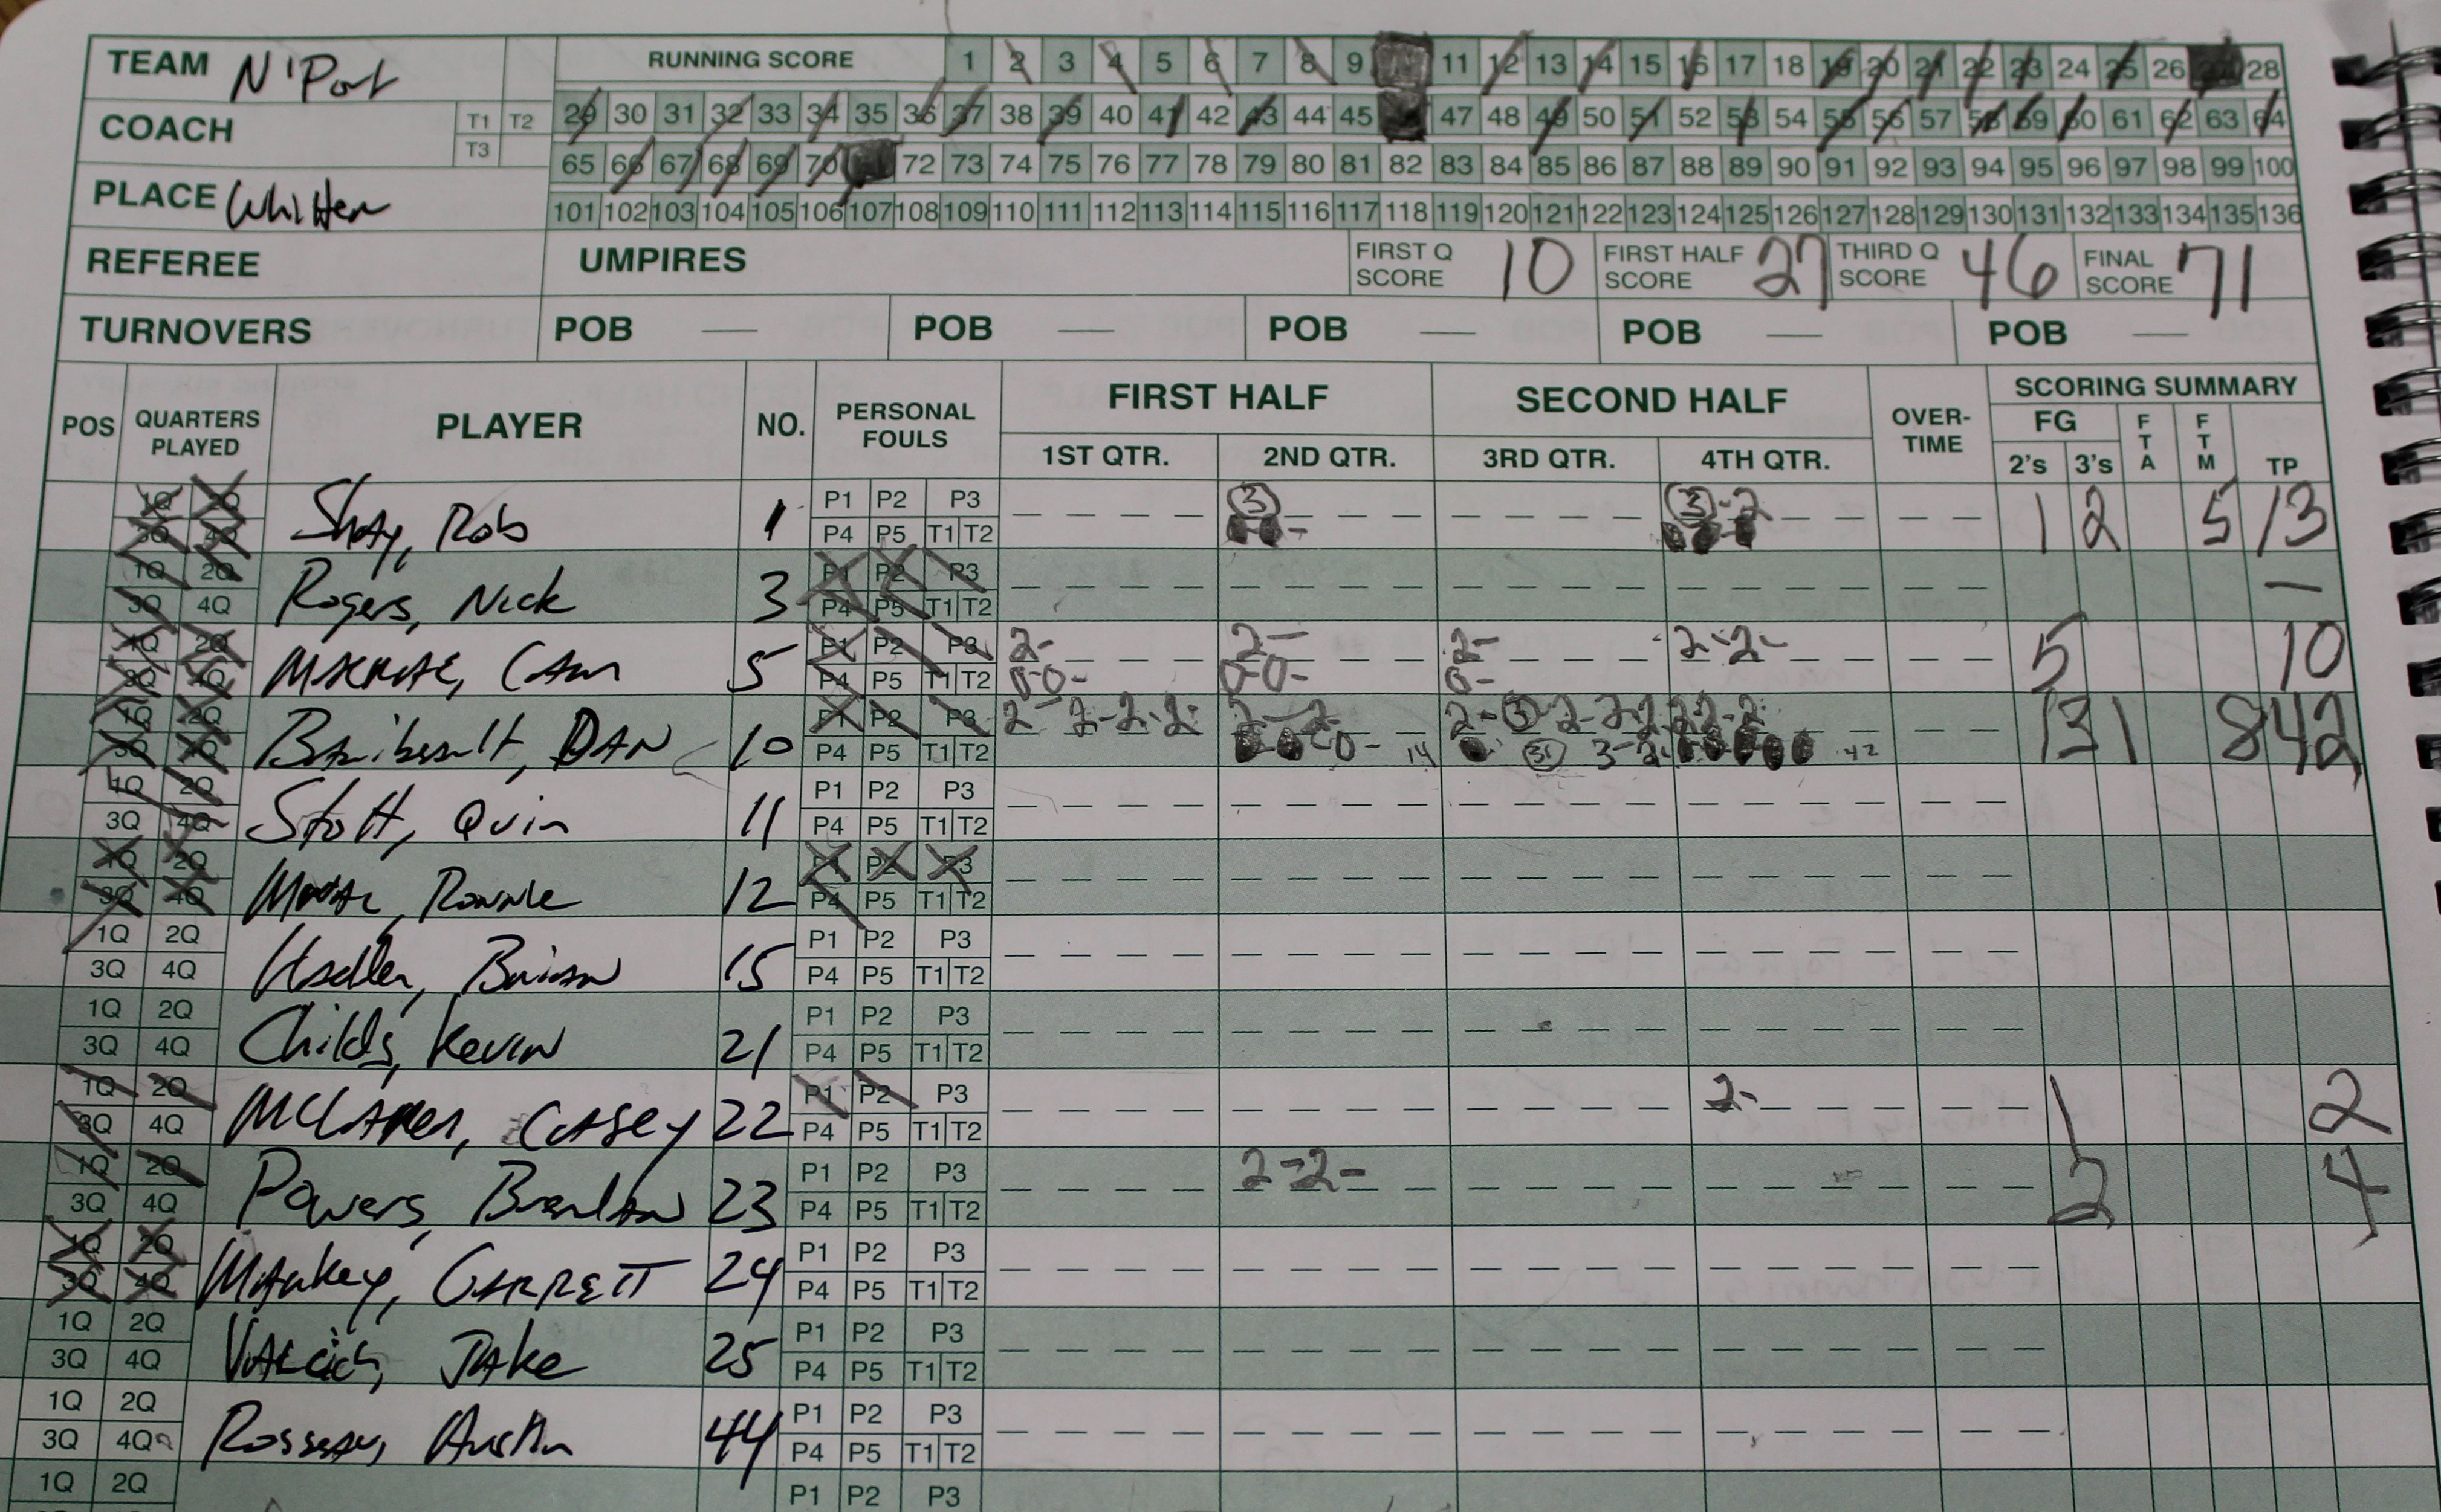 TEAM N'Port RUNNING SCORE 1 2 3 4 5 6 7 8 9 11 12 13 14 15 16 17 18 19 20 21 22 23 24 25 26 28
COACH T1 T2 29 30 31 32 33 34 35 36 37 38 39 40 41 42 43 44 45 47 48 49 50 51 52 53 54 55 56 57 58 59 60 61 62 63 64
T3 65 66 67 68 69 70 72 73 74 75 76 77 78 79 80 81 82 83 84 85 86 87 88 89 90 91 92 93 94 95 96 97 98 99 100
PLACE Whittier 101 102 103 104 105 106 107 108 109 110 111 112 113 114 115 116 117 118 119 120 121 122 123 124 125 126 127 128 129 130 131 132 133 134 135 136
REFEREE UMPIRES FIRST Q SCORE 10 FIRST HALF SCORE 27 THIRD Q SCORE 46 FINAL SCORE 71
TURNOVERS POB — POB — POB — POB — POB —
POS QUARTERS PLAYED PLAYER NO. PERSONAL FOULS FIRST HALF SECOND HALF OVER-TIME SCORING SUMMARY
1ST QTR. 2ND QTR. 3RD QTR. 4TH QTR. FG 2's 3's FTA FTM TP
1Q 2Q Shay, Rob 1 P1 P2 P3 3 3-2 1 2 5 13
3Q 4Q P4 P5 T1 T2
1Q 2Q Rogers, Nick 3 P1 P2 P3 —
3Q 4Q P4 P5 T1 T2
1Q 2Q Cam 5 P1 P2 P3 2- 2- 2- 2-2- 5 10
3Q 4Q P4 P5 T1 T2 00- 00- 0-
1Q 2Q DAN 10 P1 P2 P3 2-2-2-2- 2-2- 2-3 2-2-2 2 2-2- 13 1 8 42
3Q 4Q P4 P5 T1 T2 14 42
1Q 2Q Stott, Quin 11 P1 P2 P3
3Q 4Q P4 P5 T1 T2
1Q 2Q Ronnie 12 P1 P2 P3
3Q 4Q P4 P5 T1 T2
1Q 2Q Brian 15 P1 P2 P3
3Q 4Q P4 P5 T1 T2
1Q 2Q Childs, Kevin 21 P1 P2 P3
3Q 4Q P4 P5 T1 T2
1Q 2Q CASEY 22 P1 P2 P3 2- 1 2
3Q 4Q P4 P5 T1 T2
1Q 2Q Powers, Brendan 23 P1 P2 P3 2-2- 2 4
3Q 4Q P4 P5 T1 T2
1Q 2Q MAnkey, GARRETT 24 P1 P2 P3
3Q 4Q P4 P5 T1 T2
1Q 2Q JAke 25 P1 P2 P3
3Q 4Q P4 P5 T1 T2
1Q 2Q Austin 44 P1 P2 P3
3Q 4Q P4 P5 T1 T2
1Q 2Q P1 P2 P3